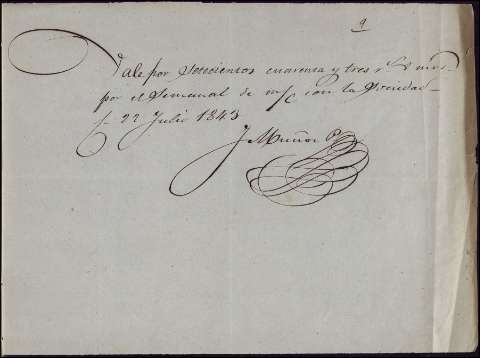 9
Vale por Setecientos cuarenta y tres r.s v. mrs.
por el Semanal de m/c con la Sociedad
22 Julio 1843
J Muñoz